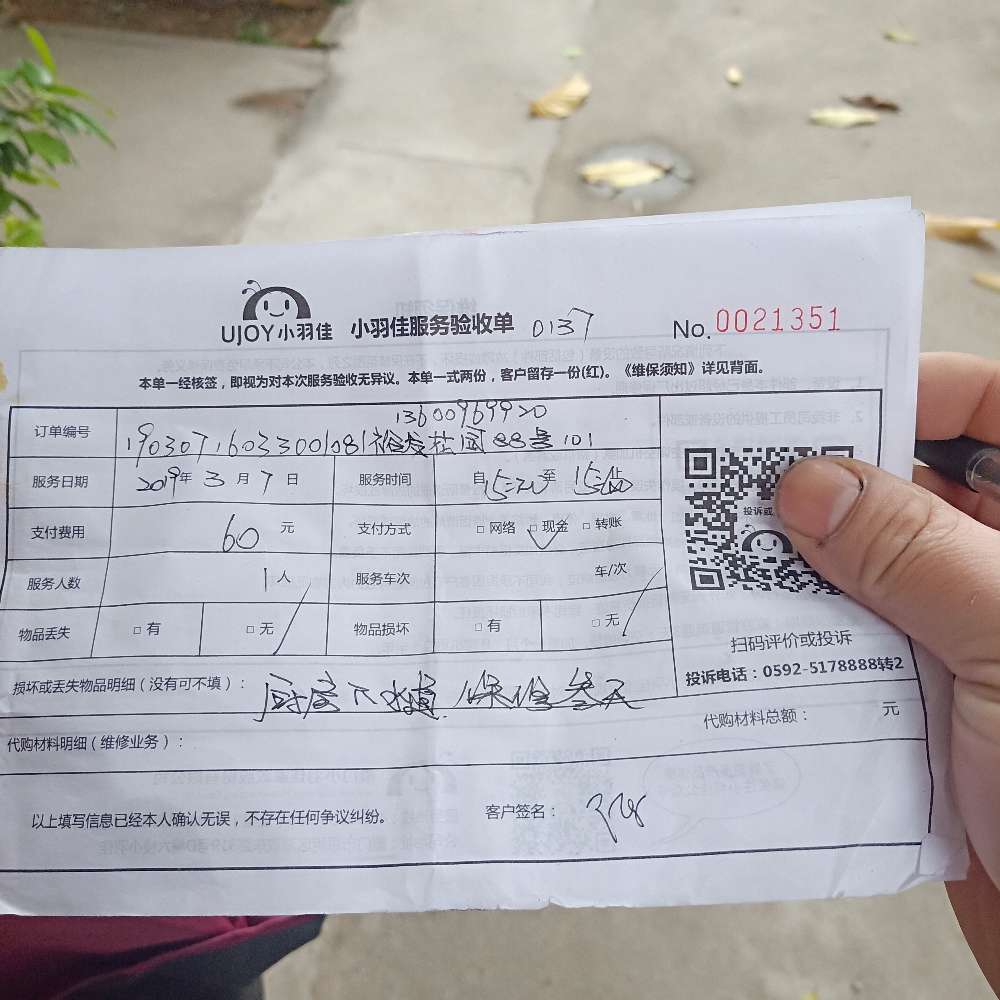 UJOY小羽佳 小羽佳服务验收单 0137 No.0021351
本单一经核签，即视为对本次服务验收无异议。本单一式两份，客户留存一份(红)。《维保须知》详见背面。
13600969920
订单编号 19030716033001081裕发花园88号101
服务日期 2019年3月7日 服务时间 自15:20至15:
支付费用 60元 支付方式 □网络 □现金 □转账
服务人数 1人 服务车次 车/次
物品丢失 □有 □无 物品损坏 □有 □无
投诉或
扫码评价或投诉
投诉电话：0592-5178888转2
损坏或丢失物品明细（没有可不填）： 厨房下水道 保修叁天
代购材料明细（维修业务）： 代购材料总额： 元
以上填写信息已经本人确认无误，不存在任何争议纠纷。 客户签名：